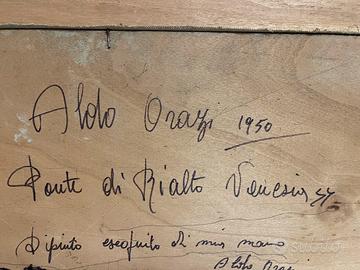 Aldo Orazi 1950
Ponte di Rialto Venezia
Dipinto eseguito di mia mano
Aldo Orazi